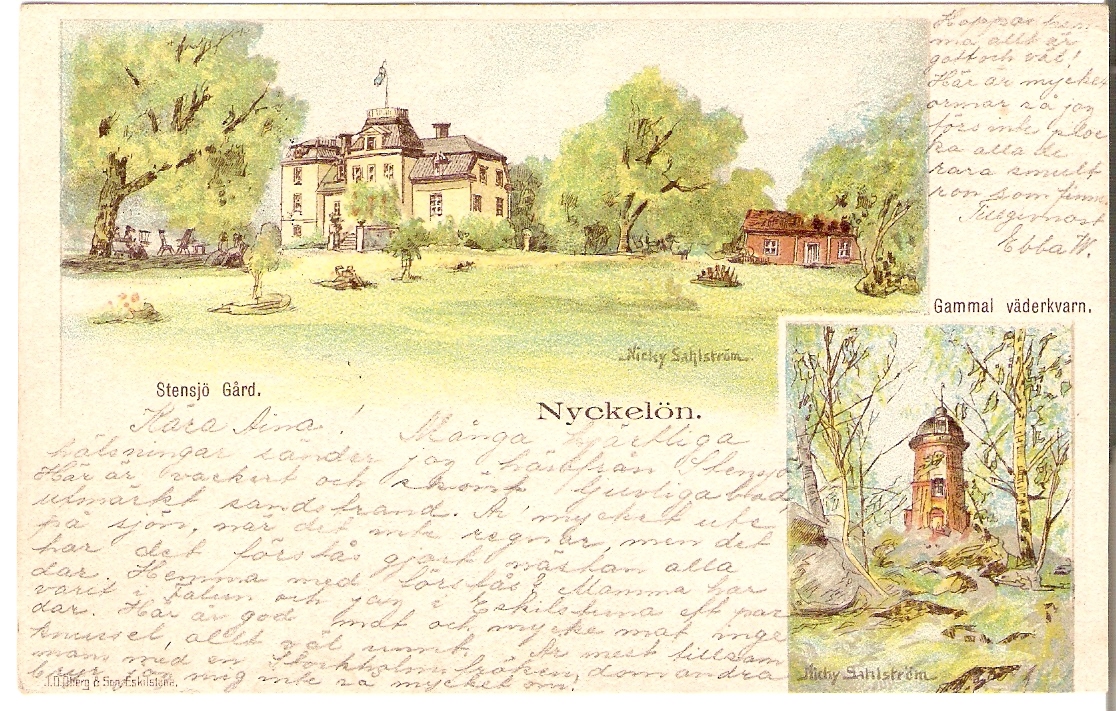 Stensjö Gård.
Nyckelön.
Nicky Sahlström
Gammal väderkvarn.
Nicky Sahlström
J.O. Öberg & Son, Eskilstuna.
Kära Aina! Många hjärtliga
hälsningar sänder jag härifrån Stensjö
Här är vackert och skönt ljuvliga bad
utmärkt sandstrand. Är mycket ute
på sjön, när det inte regnar, men det
har det förstås gjort nästan alla
dar. Hemma med förstås? Mamma har
varit i Falun och jag i Eskilstuna ett par
dar. Här är god mat och mycke mat, inge
knussel, allt väl unnt. Är mest tillsam
mans med en Stockholmsfröken, dom andra
bryr jag mig inte så mycket om.
Hoppas hem
ma allt är
gott och väl!
Här är mycket
ormar så jag
törs inte ploc
ka alla de
rara smult
ron som finns
Tillgifnast
Ebba W.